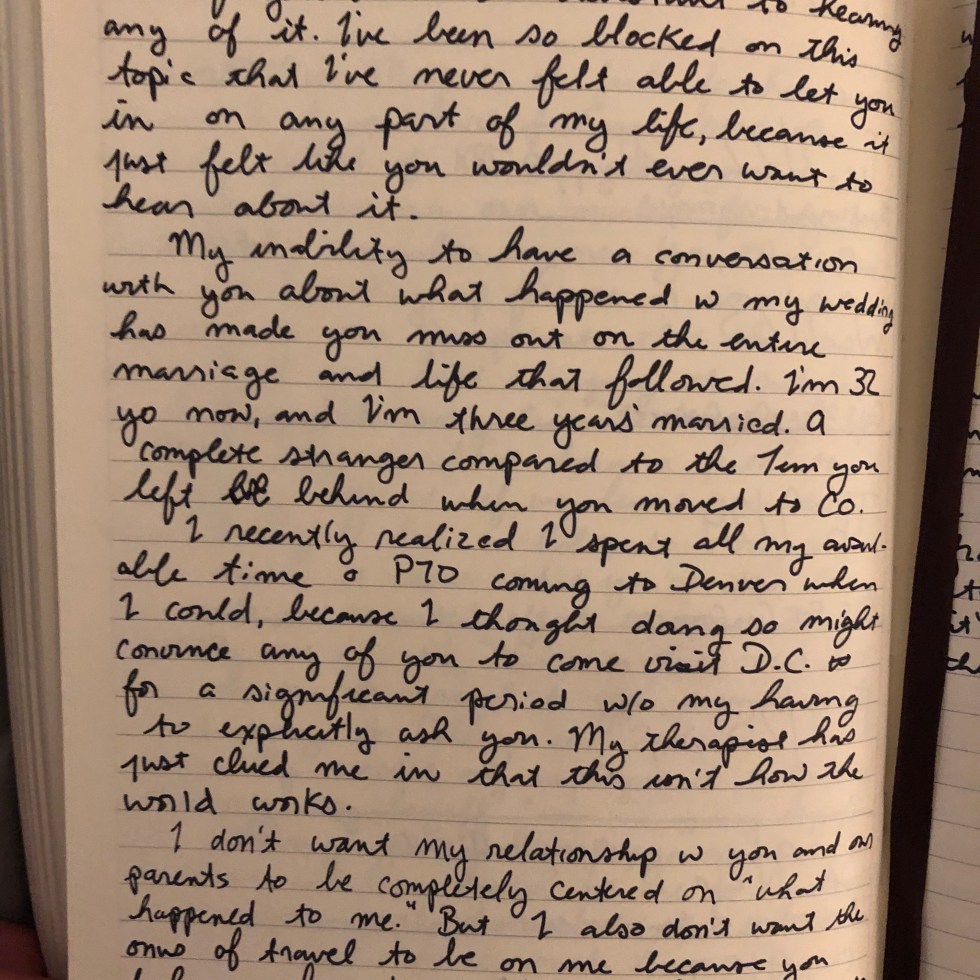 to hearing
any of it. I've been so blocked on this
topic that I've never felt able to let you
in on any part of my life, because it
just felt like you wouldn't ever want to
hear about it.
My inability to have a conversation
with you about what happened w my wedding
has made you miss out on the entire
marriage and life that followed. I'm 32
yo now, and I'm three years' married. A
complete stranger compared to the Tem you
left behind when you moved to CO.
I recently realized I spent all my avail-
able time & PTO coming to Denver when
I could, because I thought doing so might
convince any of you to come visit D.C.
for a significant period w/o my having
to explicitly ask you. My therapist has
just clued me in that this isn't how the
world works.
I don't want my relationship w you and our
parents to be completely centered on "what
happened to me." But I also don't want the
onus of travel to be on me because you